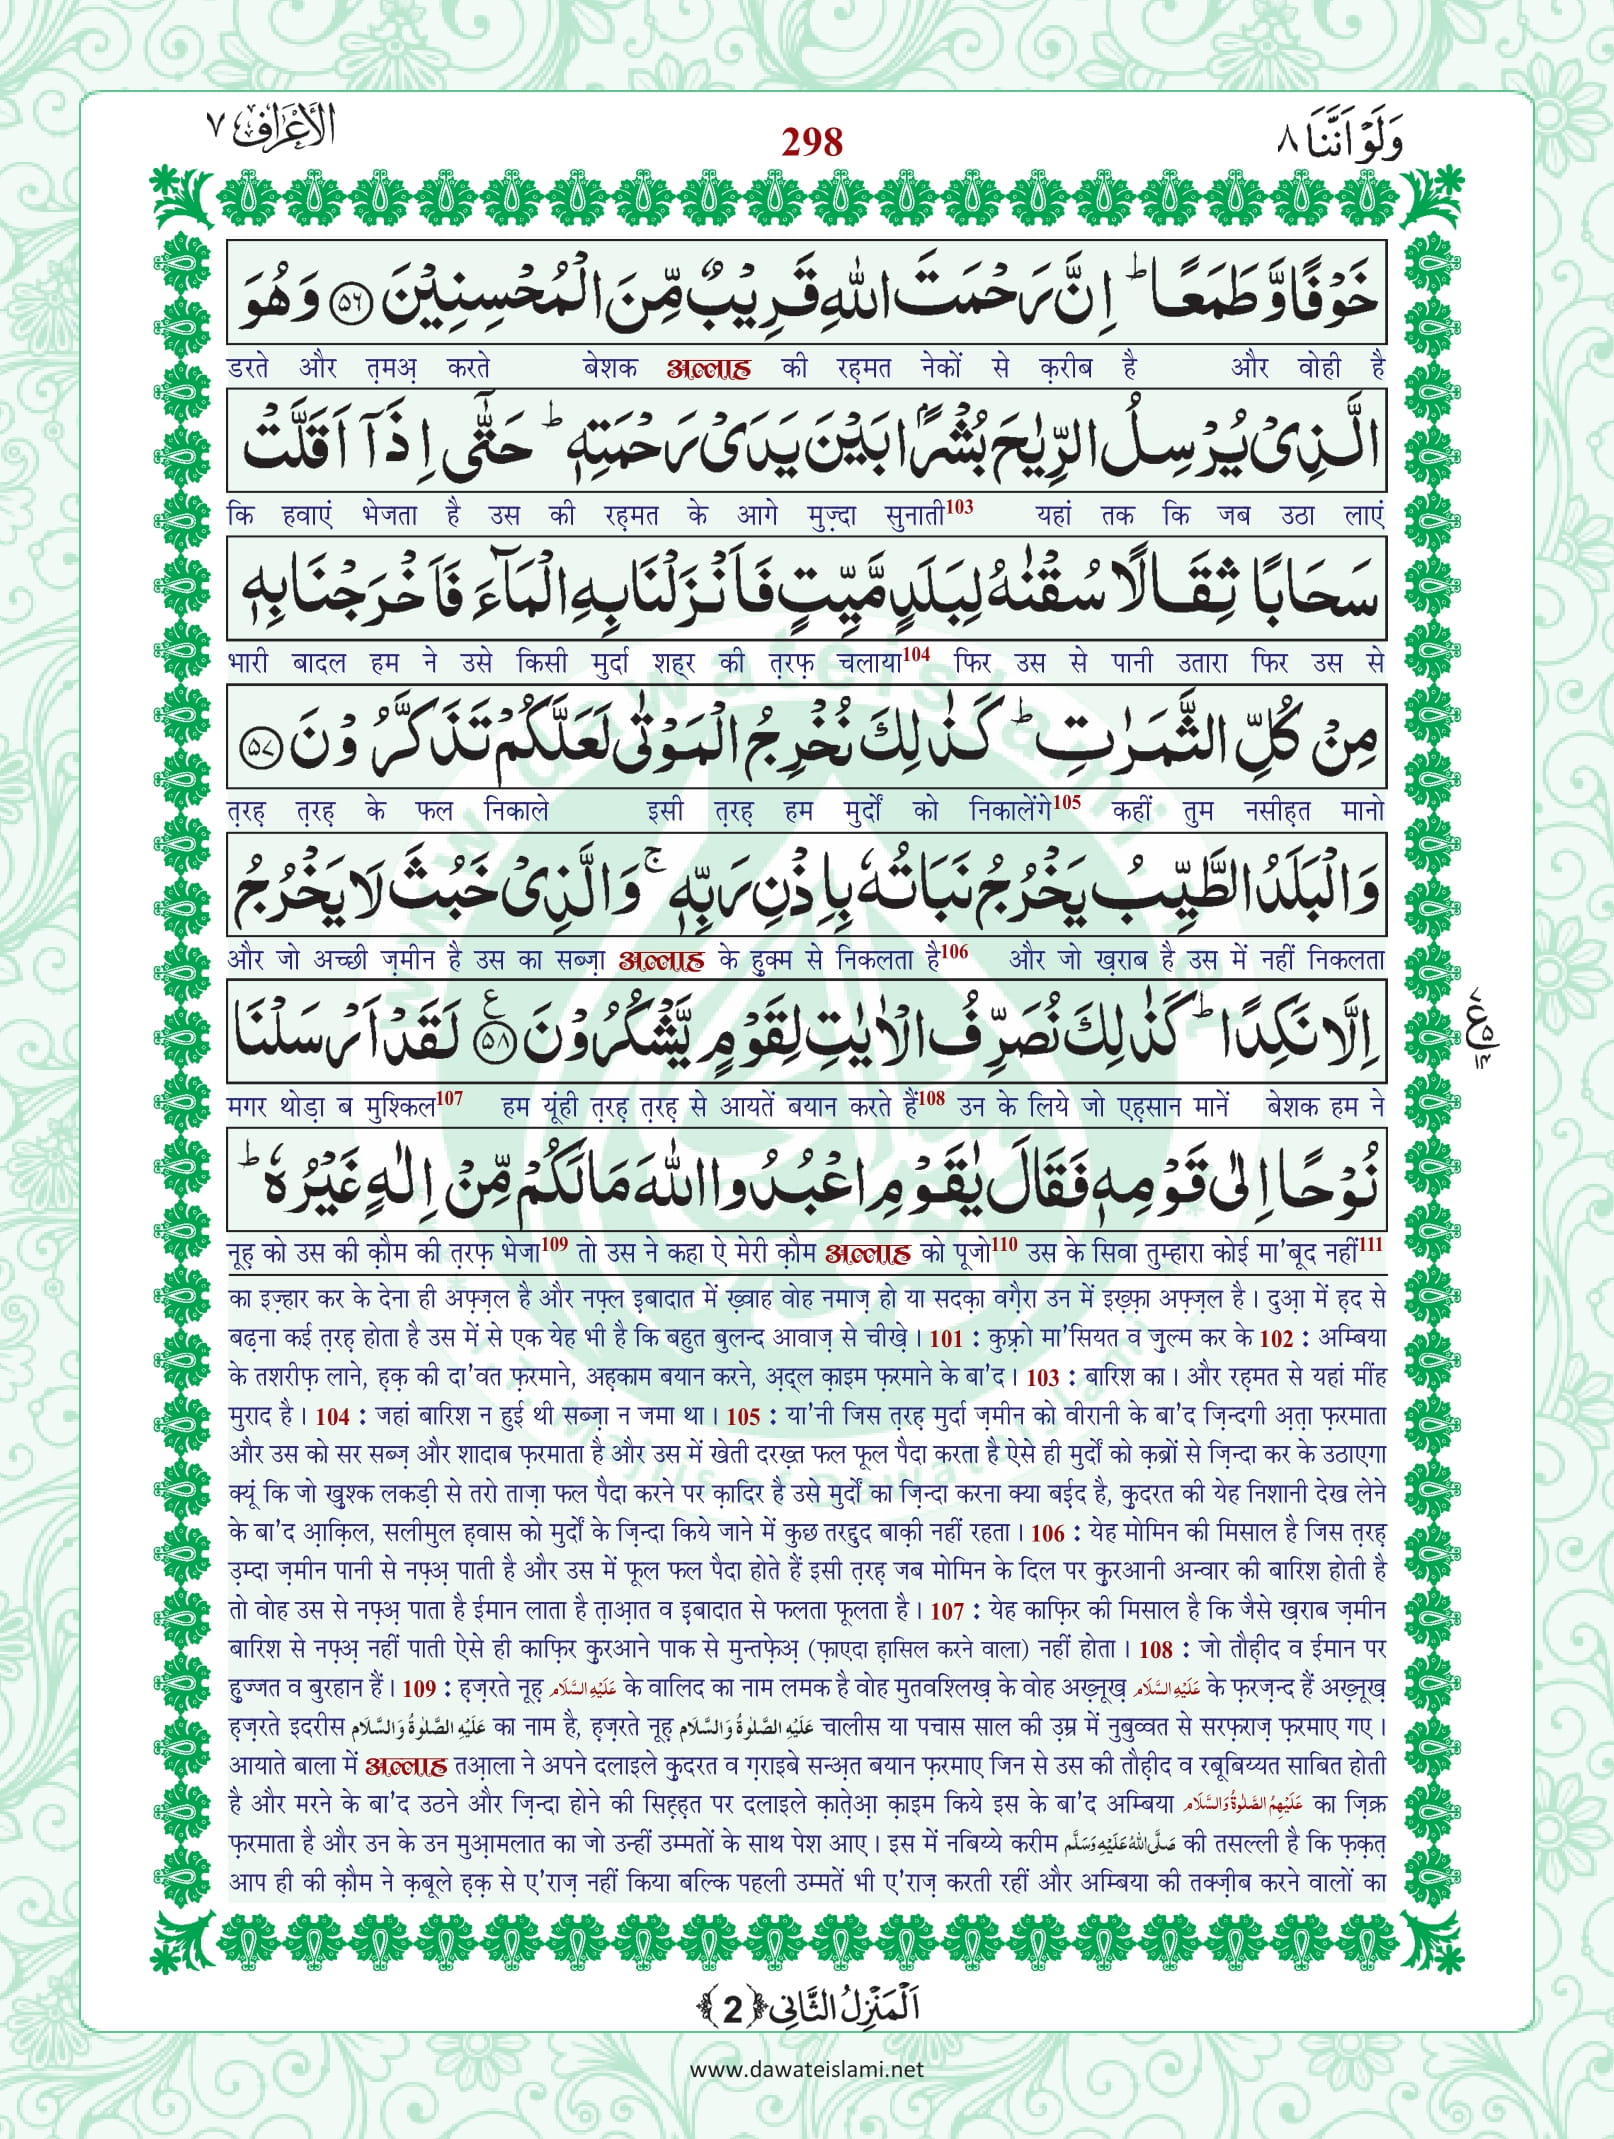 وَلَوْ اَنَّنَا ٨
298
الْاَعْرَاف ٧
خَوْفًا وَّ طَمَعًا ؕ اِنَّ رَحْمَتَ اللّٰهِ قَرِیْبٌ مِّنَ الْمُحْسِنِیْنَ ﴿۵۶﴾ وَ هُوَ
डरते और त़मअ़ करते बेशक अल्लाह की रह़मत नेकों से क़रीब है और वोही है
الَّذِیْ یُرْسِلُ الرِّیٰحَ بُشْرًۢا بَیْنَ یَدَیْ رَحْمَتِهٖ ؕ حَتّٰۤی اِذَاۤ اَقَلَّتْ
कि हवाएं भेजता है उस की रह़मत के आगे मुज़्दा सुनाती103 यहां तक कि जब उठा लाएं
سَحَابًا ثِقَالًا سُقْنٰهُ لِبَلَدٍ مَّیِّتٍ فَاَنْزَلْنَا بِهِ الْمَآءَ فَاَخْرَجْنَا بِهٖ
भारी बादल हम ने उसे किसी मुर्दा शह्‌र की त़रफ़ चलाया104 फिर उस से पानी उतारा फिर उस से
مِنْ كُلِّ الثَّمَرٰتِ ؕ كَذٰلِكَ نُخْرِجُ الْمَوْتٰی لَعَلَّكُمْ تَذَكَّرُوْنَ ﴿۵۷﴾
त़रह़ त़रह़ के फल निकाले इसी त़रह़ हम मुर्दों को निकालेंगे105 कहीं तुम नसीह़त मानो
وَ الْبَلَدُ الطَّیِّبُ یَخْرُجُ نَبَاتُهٗ بِاِذْنِ رَبِّهٖ ۚ وَ الَّذِیْ خَبُثَ لَا یَخْرُجُ
और जो अच्छी ज़मीन है उस का सब्ज़ा अल्लाह के ह़ुक्म से निकलता है106 और जो ख़राब है उस में नहीं निकलता
اِلَّا نَكِدًا ؕ كَذٰلِكَ نُصَرِّفُ الْاٰیٰتِ لِقَوْمٍ یَّشْكُرُوْنَ ﴿۵۸﴾ ع لَقَدْ اَرْسَلْنَا
ع ۵ ۱۴
मगर थोड़ा ब मुश्किल107 हम यूंही त़रह़ त़रह़ से आयतें बयान करते हैं108 उन के लिये जो एह़सान मानें बेशक हम ने
نُوْحًا اِلٰی قَوْمِهٖ فَقَالَ یٰقَوْمِ اعْبُدُوا اللّٰهَ مَا لَكُمْ مِّنْ اِلٰهٍ غَیْرُهٗ ؕ
नूह़ को उस की क़ौम की त़रफ़ भेजा109 तो उस ने कहा ऐ मेरी क़ौम अल्लाह को पूजो110 उस के सिवा तुम्हारा कोई मा'बूद नहीं111
का इज़्हार कर के देना ही अफ़्ज़ल है और नफ़्ल इबादात में ख़्वाह वोह नमाज़ हो या सदक़ा वग़ैरा उन में इख़्फ़ा अफ़्ज़ल है। दुआ़ में ह़द से
बढ़ना कई त़रह़ होता है उस में से एक येह भी है कि बहुत बुलन्द आवाज़ से चीख़े। 101 : कुफ़्रो मा'सियत व ज़ुल्म कर के 102 : अम्बिया
के तशरीफ़ लाने, ह़क़ की दा'वत फ़रमाने, अह़काम बयान करने, अ़द्ल क़ाइम फ़रमाने के बा'द। 103 : बारिश का। और रह़मत से यहां मींह
मुराद है। 104 : जहां बारिश न हुई थी सब्ज़ा न जमा था। 105 : या'नी जिस त़रह़ मुर्दा ज़मीन को वीरानी के बा'द ज़िन्दगी अ़त़ा फ़रमाता
और उस को सर सब्ज़ और शादाब फ़रमाता है और उस में खेती दरख़्त फल फूल पैदा करता है ऐसे ही मुर्दों को क़ब्रों से ज़िन्दा कर के उठाएगा
क्यूं कि जो ख़ुश्क लकड़ी से तरो ताज़ा फल पैदा करने पर क़ादिर है उसे मुर्दों का ज़िन्दा करना क्या बई़द है, क़ुदरत की येह निशानी देख लेने
के बा'द आ़क़िल, सलीमुल ह़वास को मुर्दों के ज़िन्दा किये जाने में कुछ तरद्दुद बाक़ी नहीं रहता। 106 : येह मोमिन की मिसाल है जिस त़रह़
उ़म्दा ज़मीन पानी से नफ़्अ़ पाती है और उस में फूल फल पैदा होते हैं इसी त़रह़ जब मोमिन के दिल पर क़ुरआनी अन्वार की बारिश होती है
तो वोह उस से नफ़्अ़ पाता है ईमान लाता है त़ाआ़त व इ़बादात से फलता फूलता है। 107 : येह काफ़िर की मिसाल है कि जैसे ख़राब ज़मीन
बारिश से नफ़्अ़ नहीं पाती ऐसे ही काफ़िर क़ुरआने पाक से मुन्तफ़ेअ़ (फ़ाएदा ह़ासिल करने वाला) नहीं होता। 108 : जो तौह़ीद व ईमान पर
ह़ुज्जत व बुरहान हैं। 109 : ह़ज़रते नूह़ عَلَیْهِ السَّلَام के वालिद का नाम लमक है वोह मुतवश्लिख़ के वोह अख़्नूख़ عَلَیْهِ السَّلَام के फ़रज़न्द हैं अख़्नूख़
ह़ज़रते इदरीस عَلَیْهِ الصَّلٰوةُ وَالسَّلَام का नाम है, ह़ज़रते नूह़ عَلَیْهِ الصَّلٰوةُ وَالسَّلَام चालीस या पचास साल की उ़म्र में नुबुव्वत से सरफ़राज़ फ़रमाए गए।
आयाते बाला में अल्लाह तआ़ला ने अपने दलाइले क़ुदरत व ग़राइबे सन्अ़त बयान फ़रमाए जिन से उस की तौह़ीद व रबूबिय्यत साबित होती
है और मरने के बा'द उठने और ज़िन्दा होने की सिह़्ह़त पर दलाइले क़ात़ेआ़ क़ाइम किये इस के बा'द अम्बिया عَلَیْهِمُ الصَّلٰوةُ وَالسَّلَام का ज़िक्र
फ़रमाता है और उन के उन मुआ़मलात का जो उन्हीं उम्मतों के साथ पेश आए। इस में नबिय्ये करीम صَلَّى اللّٰهُ عَلَیْهِ وَسَلَّم की तसल्ली है कि फ़क़त़
आप ही की क़ौम ने क़बूले ह़क़ से ए'राज़ नहीं किया बल्कि पहली उम्मतें भी ए'राज़ करती रहीं और अम्बिया की तक्ज़ीब करने वालों का
اَلْمَنْزِلُ الثَّانِی ﴿2﴾
www.dawateislami.net